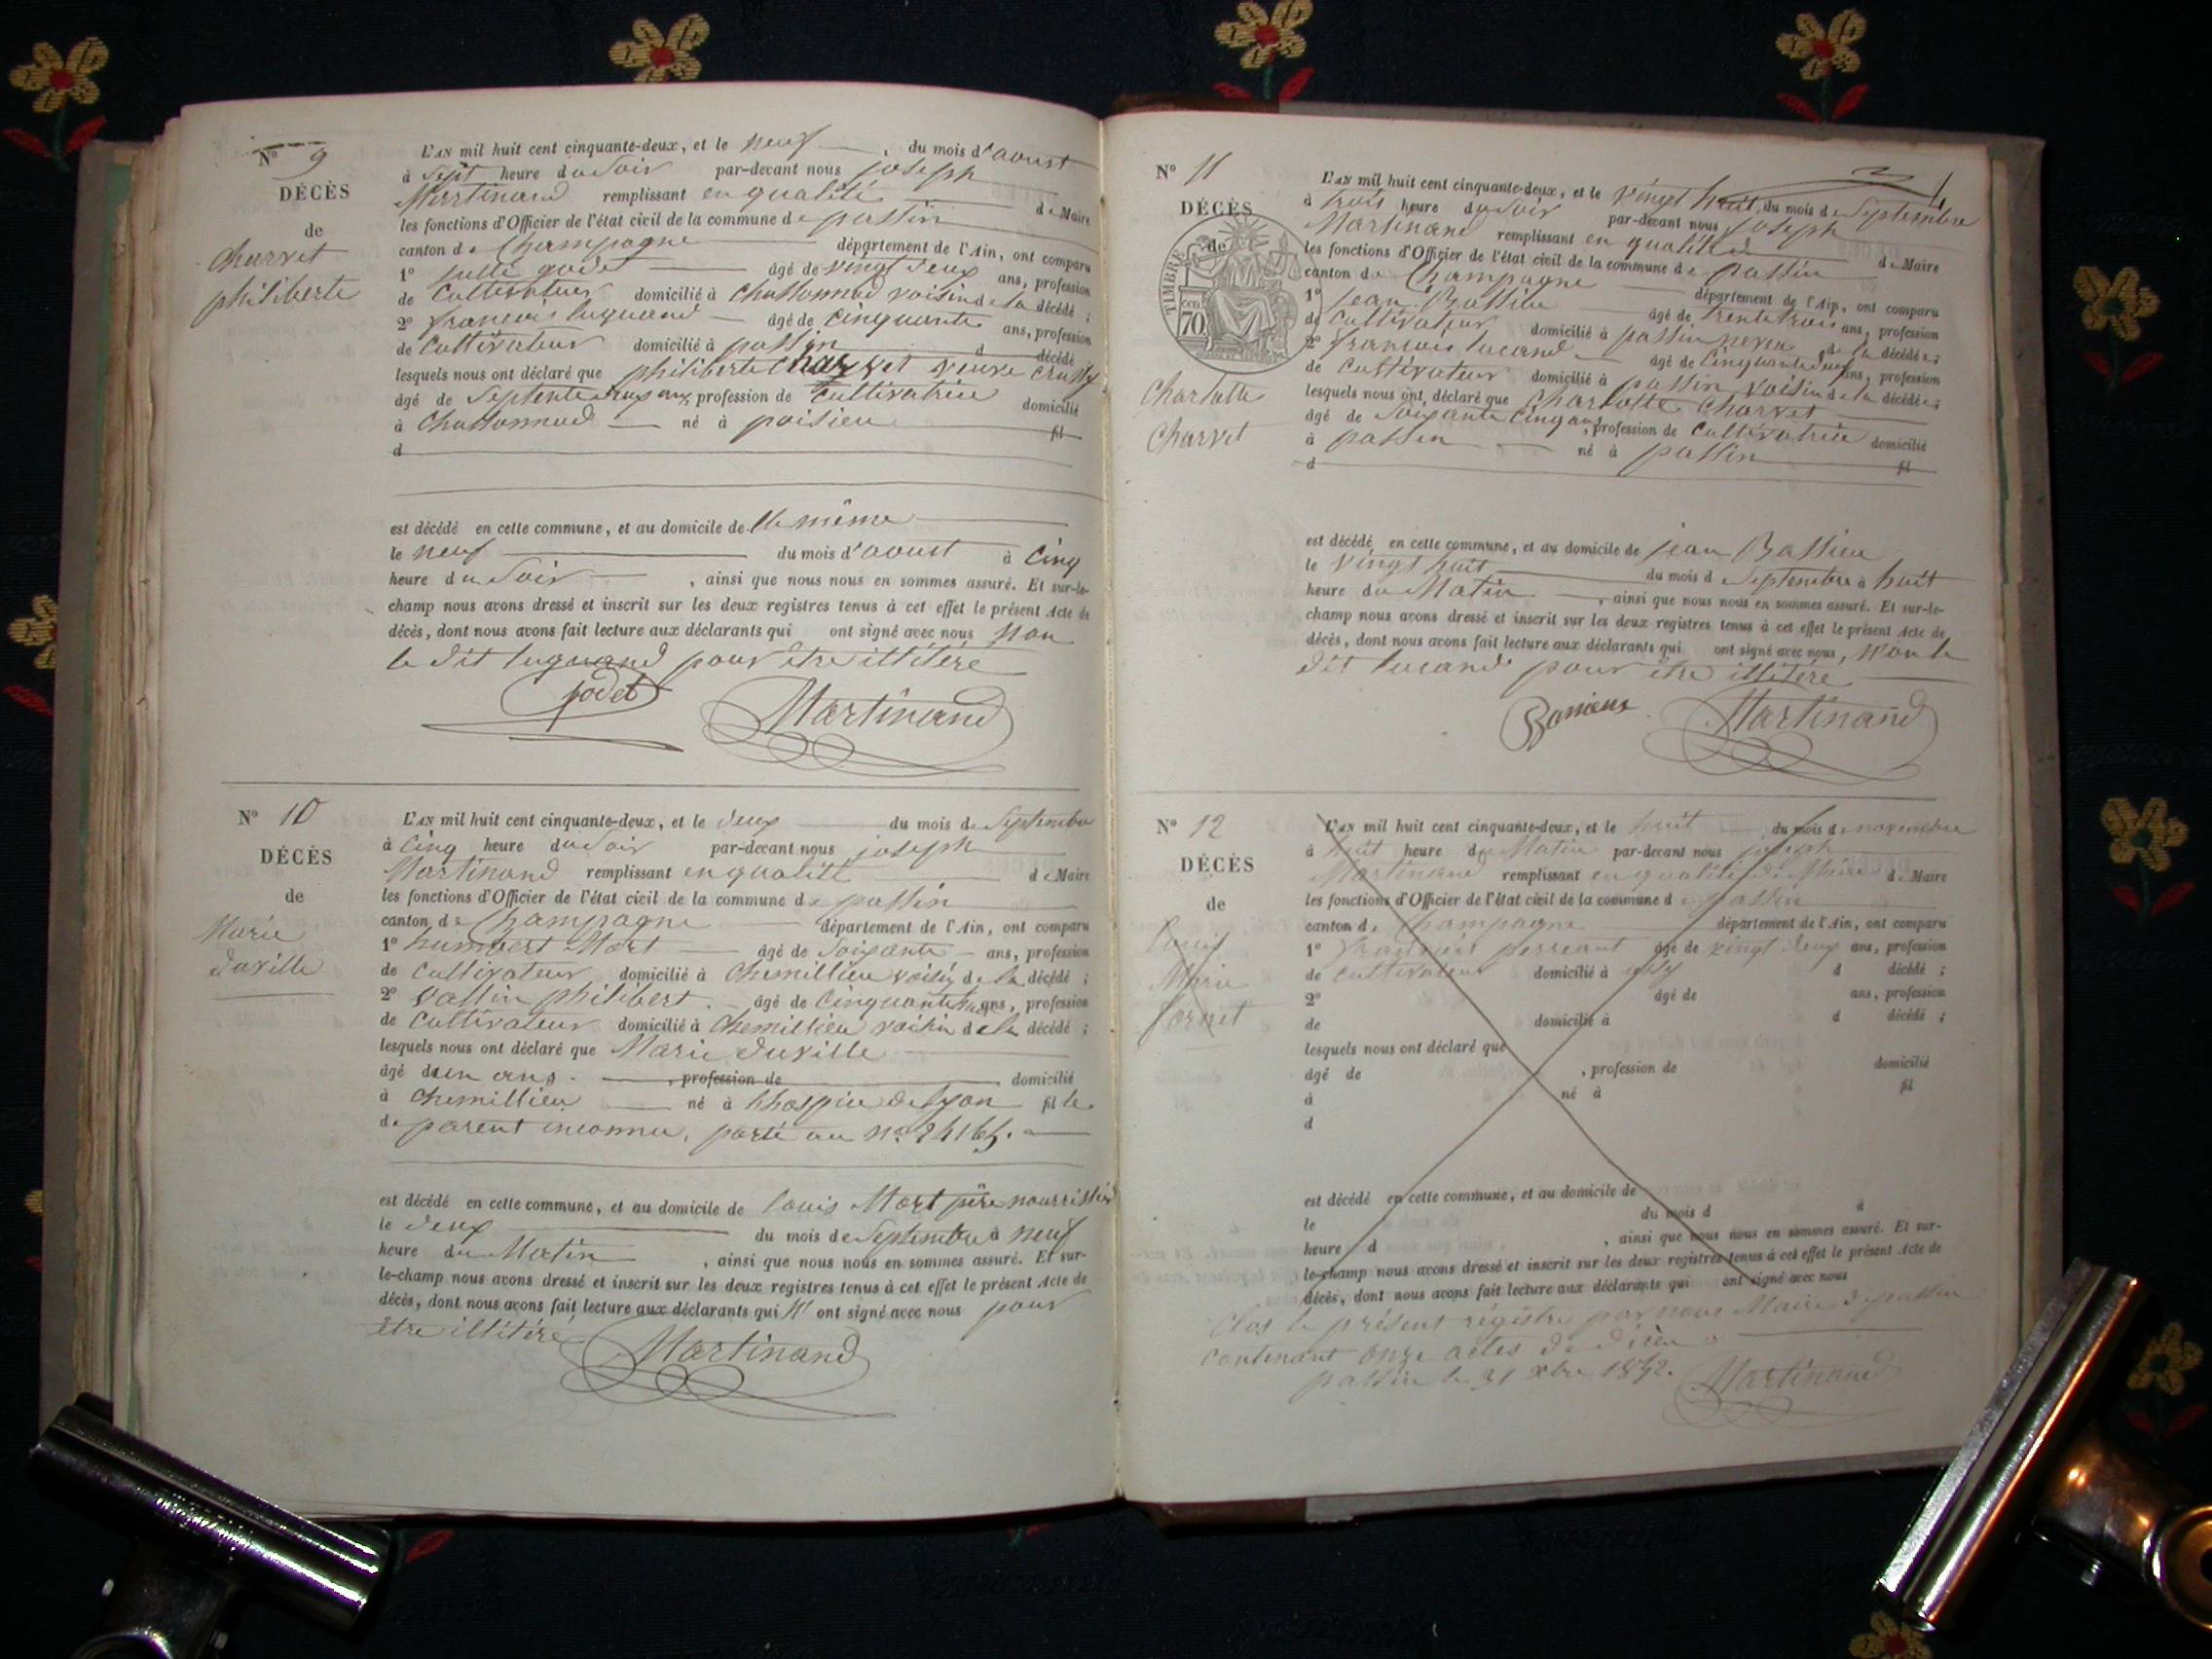 N° 9
DÉCÈS
de
Charvet
philiberte
L'AN mil huit cent cinquante-deux, et le neuf, du mois d'aoust
à Sept heure du Soir par-devant nous joseph
Martinand remplissant en qualité de Maire
les fonctions d'Officier de l'état civil de la commune de passin
canton de Champagne département de l'Ain, ont comparu
1° godet âgé de vingt deux ans, profession
de Cultivateur domicilié à Chattonnod voisin de la décédé ;
2° françois luquand âgé de Cinquante ans, profession
de Cultivateur domicilié à passin d décédé
lesquels nous ont déclaré que philiberte Charvet veuve
âgé de Septente deux ans, profession de Cultivatrice domicilié
à Chattonnod né à poisieu fil
d
est décédé en cette commune, et au domicile de même
le neuf du mois d'aoust à Cinq
heure du Soir, ainsi que nous nous en sommes assuré. Et sur-le-
champ nous avons dressé et inscrit sur les deux registres tenus à cet effet le présent Acte de
décès, dont nous avons fait lecture aux déclarants qui ont signé avec nous Non
le dit luquand pour être illitéré
Godet Martinand
N° 10
DÉCÈS
de
Marie
duville
L'AN mil huit cent cinquante-deux, et le deux du mois de Septembre
à Cinq heure du Soir par-devant nous joseph
Martinand remplissant en qualité de Maire
les fonctions d'Officier de l'état civil de la commune de passin
canton de Champagne département de l'Ain, ont comparu
1° humbert Mort âgé de Soixante ans, profession
de Cultivateur domicilié à Chemillieu voisin de la décédé ;
2° Vallin philibert âgé de Cinquante ans, profession
de Cultivateur domicilié à Chemillieu voisin de la décédé ;
lesquels nous ont déclaré que Marie duville
âgé d'un ans. profession de domicilié
à Chemillieu né à lhospice de lyon fille
de parent inconnu, porté au n°
est décédé en cette commune, et au domicile de louis Mort père nourrissier
le deux du mois de Septembre à neuf
heure du Matin, ainsi que nous nous en sommes assuré. Et sur-
le-champ nous avons dressé et inscrit sur les deux registres tenus à cet effet le présent Acte de
décès, dont nous avons fait lecture aux déclarants qui n' ont signé avec nous pour
être illitéré
Martinand
N° 11
DÉCÈS
de
TIMBRE
70
Charlotte
Charvet
L'AN mil huit cent cinquante-deux, et le vingt huit, du mois de Septembre
à trois heure du Soir par-devant nous joseph
Martinand remplissant en qualité de Maire
les fonctions d'Officier de l'état civil de la commune de passin
canton de Champagne département de l'Ain, ont comparu
1° jean Bassieu âgé de trente trois ans, profession
de Cultivateur domicilié à passin neveu de la décédée ;
2° françois lucand âgé de Cinquante ans, profession
de Cultivateur domicilié à passin voisin de la décédée ;
lesquels nous ont déclaré que Charlotte Charvet
âgé de Soixante Cinq ans, profession de Cultivatrice domicilié
à passin né à passin fil
d
est décédé en cette commune, et au domicile de jean Bassieu
le vingt huit du mois de Septembre à huit
heure du Matin, ainsi que nous nous en sommes assuré. Et sur-le-
champ nous avons dressé et inscrit sur les deux registres tenus à cet effet le présent Acte de
décès, dont nous avons fait lecture aux déclarants qui ont signé avec nous, Non le
dit lucand pour être illitéré
Martinand
N° 12
DÉCÈS
de
Louis
Marie
L'AN mil huit cent cinquante-deux, et le huit du mois de novembre
à huit heure du Matin par-devant nous joseph
Martinand remplissant en qualité de Maire de Maire
les fonctions d'Officier de l'état civil de la commune de passin
canton de Champagne département de l'Ain, ont comparu
1° françois âgé de vingt deux ans, profession
de Cultivateur domicilié à d décédé ;
2° âgé de ans, profession
de domicilié à d décédé ;
lesquels nous ont déclaré que
âgé de , profession de domicilié
à né à fil
d
est décédé en cette commune, et au domicile de
le du mois d à
heure d , ainsi que nous nous en sommes assuré. Et sur-
le-champ nous avons dressé et inscrit sur les deux registres tenus à cet effet le présent Acte de
décès, dont nous avons fait lecture aux déclarants qui ont signé avec nous
Clos le présent régistre par nous Maire de passin
contenant onze actes de
passin le 31 xbre 1852. Martinand